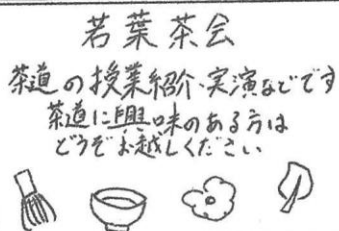 若葉茶会
茶道の授業紹介・実演などです
茶道に興味のある方は
どうぞお越しください